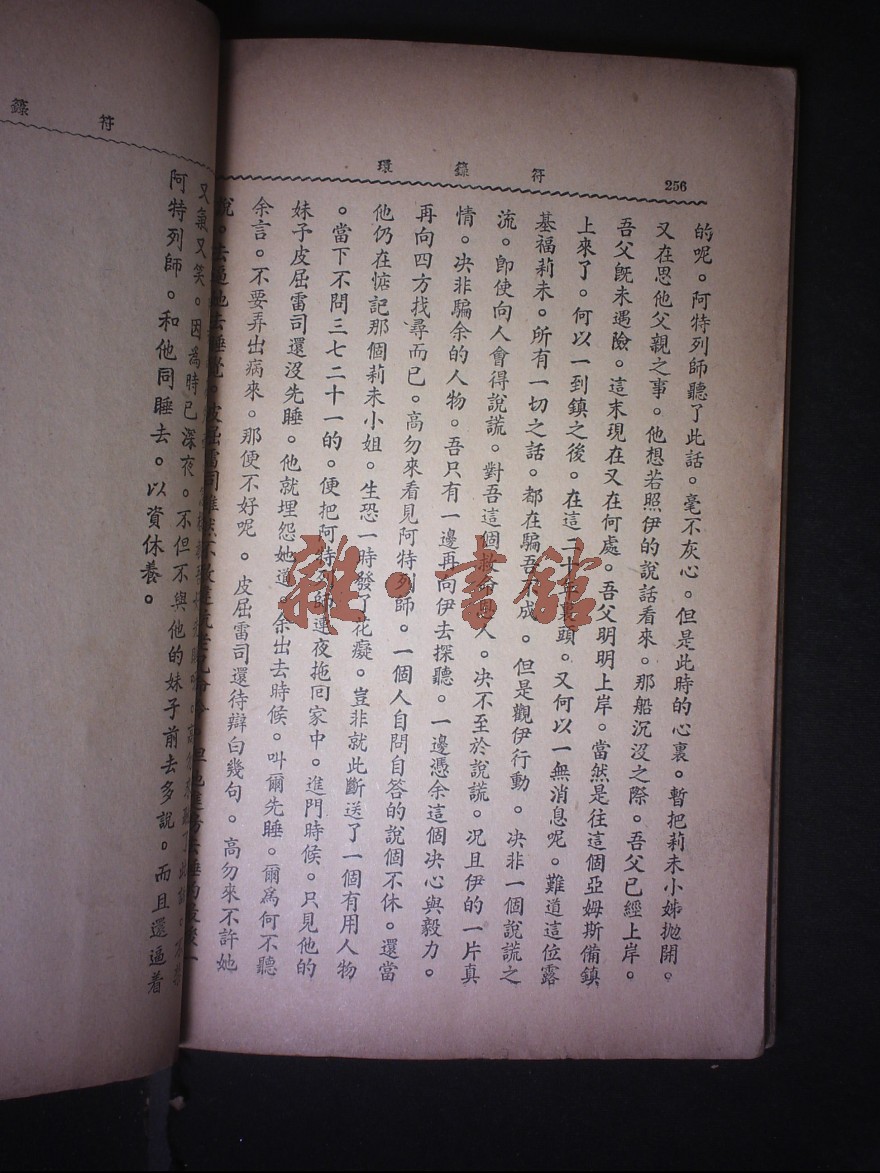 256
符籙環
的呢。阿特列師聽了此話。毫不灰心。但是此時的心裏。暫把莉未小姊拋開。
又在思他父親之事。他想若照伊的說話看來。那船沉沒之際。吾父已經上岸。
吾父既未遇險。這末現在又在何處。吾父明明上岸。當然是往這個亞姆斯備鎮
上來了。何以一到鎮之後。在這二十年裏頭。又何以一無消息呢。難道這位露
基福莉未。所有一切之話。都在騙吾不成。但是觀伊行動。决非一個說謊之
流。卽使向人會得說謊。對吾這個救命恩人。决不至於說謊。况且伊的一片真
情。决非騙余的人物。吾只有一邊再向伊去探聽。一邊憑余這個决心與毅力。
再向四方找尋而已。高勿來看見阿特列師。一個人自問自答的說個不休。還當
他仍在惦記那個莉未小姐。生恐一時發了花癡。豈非就此斷送了一個有用人物
。當下不問三七二十一的。便把阿特列師連夜拖回家中。進門時候。只見他的
妹予皮屈雷司還沒先睡。他就埋怨她道。余出去時候。叫爾先睡。爾爲何不聽
余言。不要弄出病來。那便不好呢。皮屈雷司還待辯白幾句。高勿來不許她
說。去睡覺。皮屈雷司
又氣又笑。因爲時已深夜。不但不與他的妹子前去多說。而且還逼着
阿特列師。和他同睡去。以資休養。
符籙
雜·書館